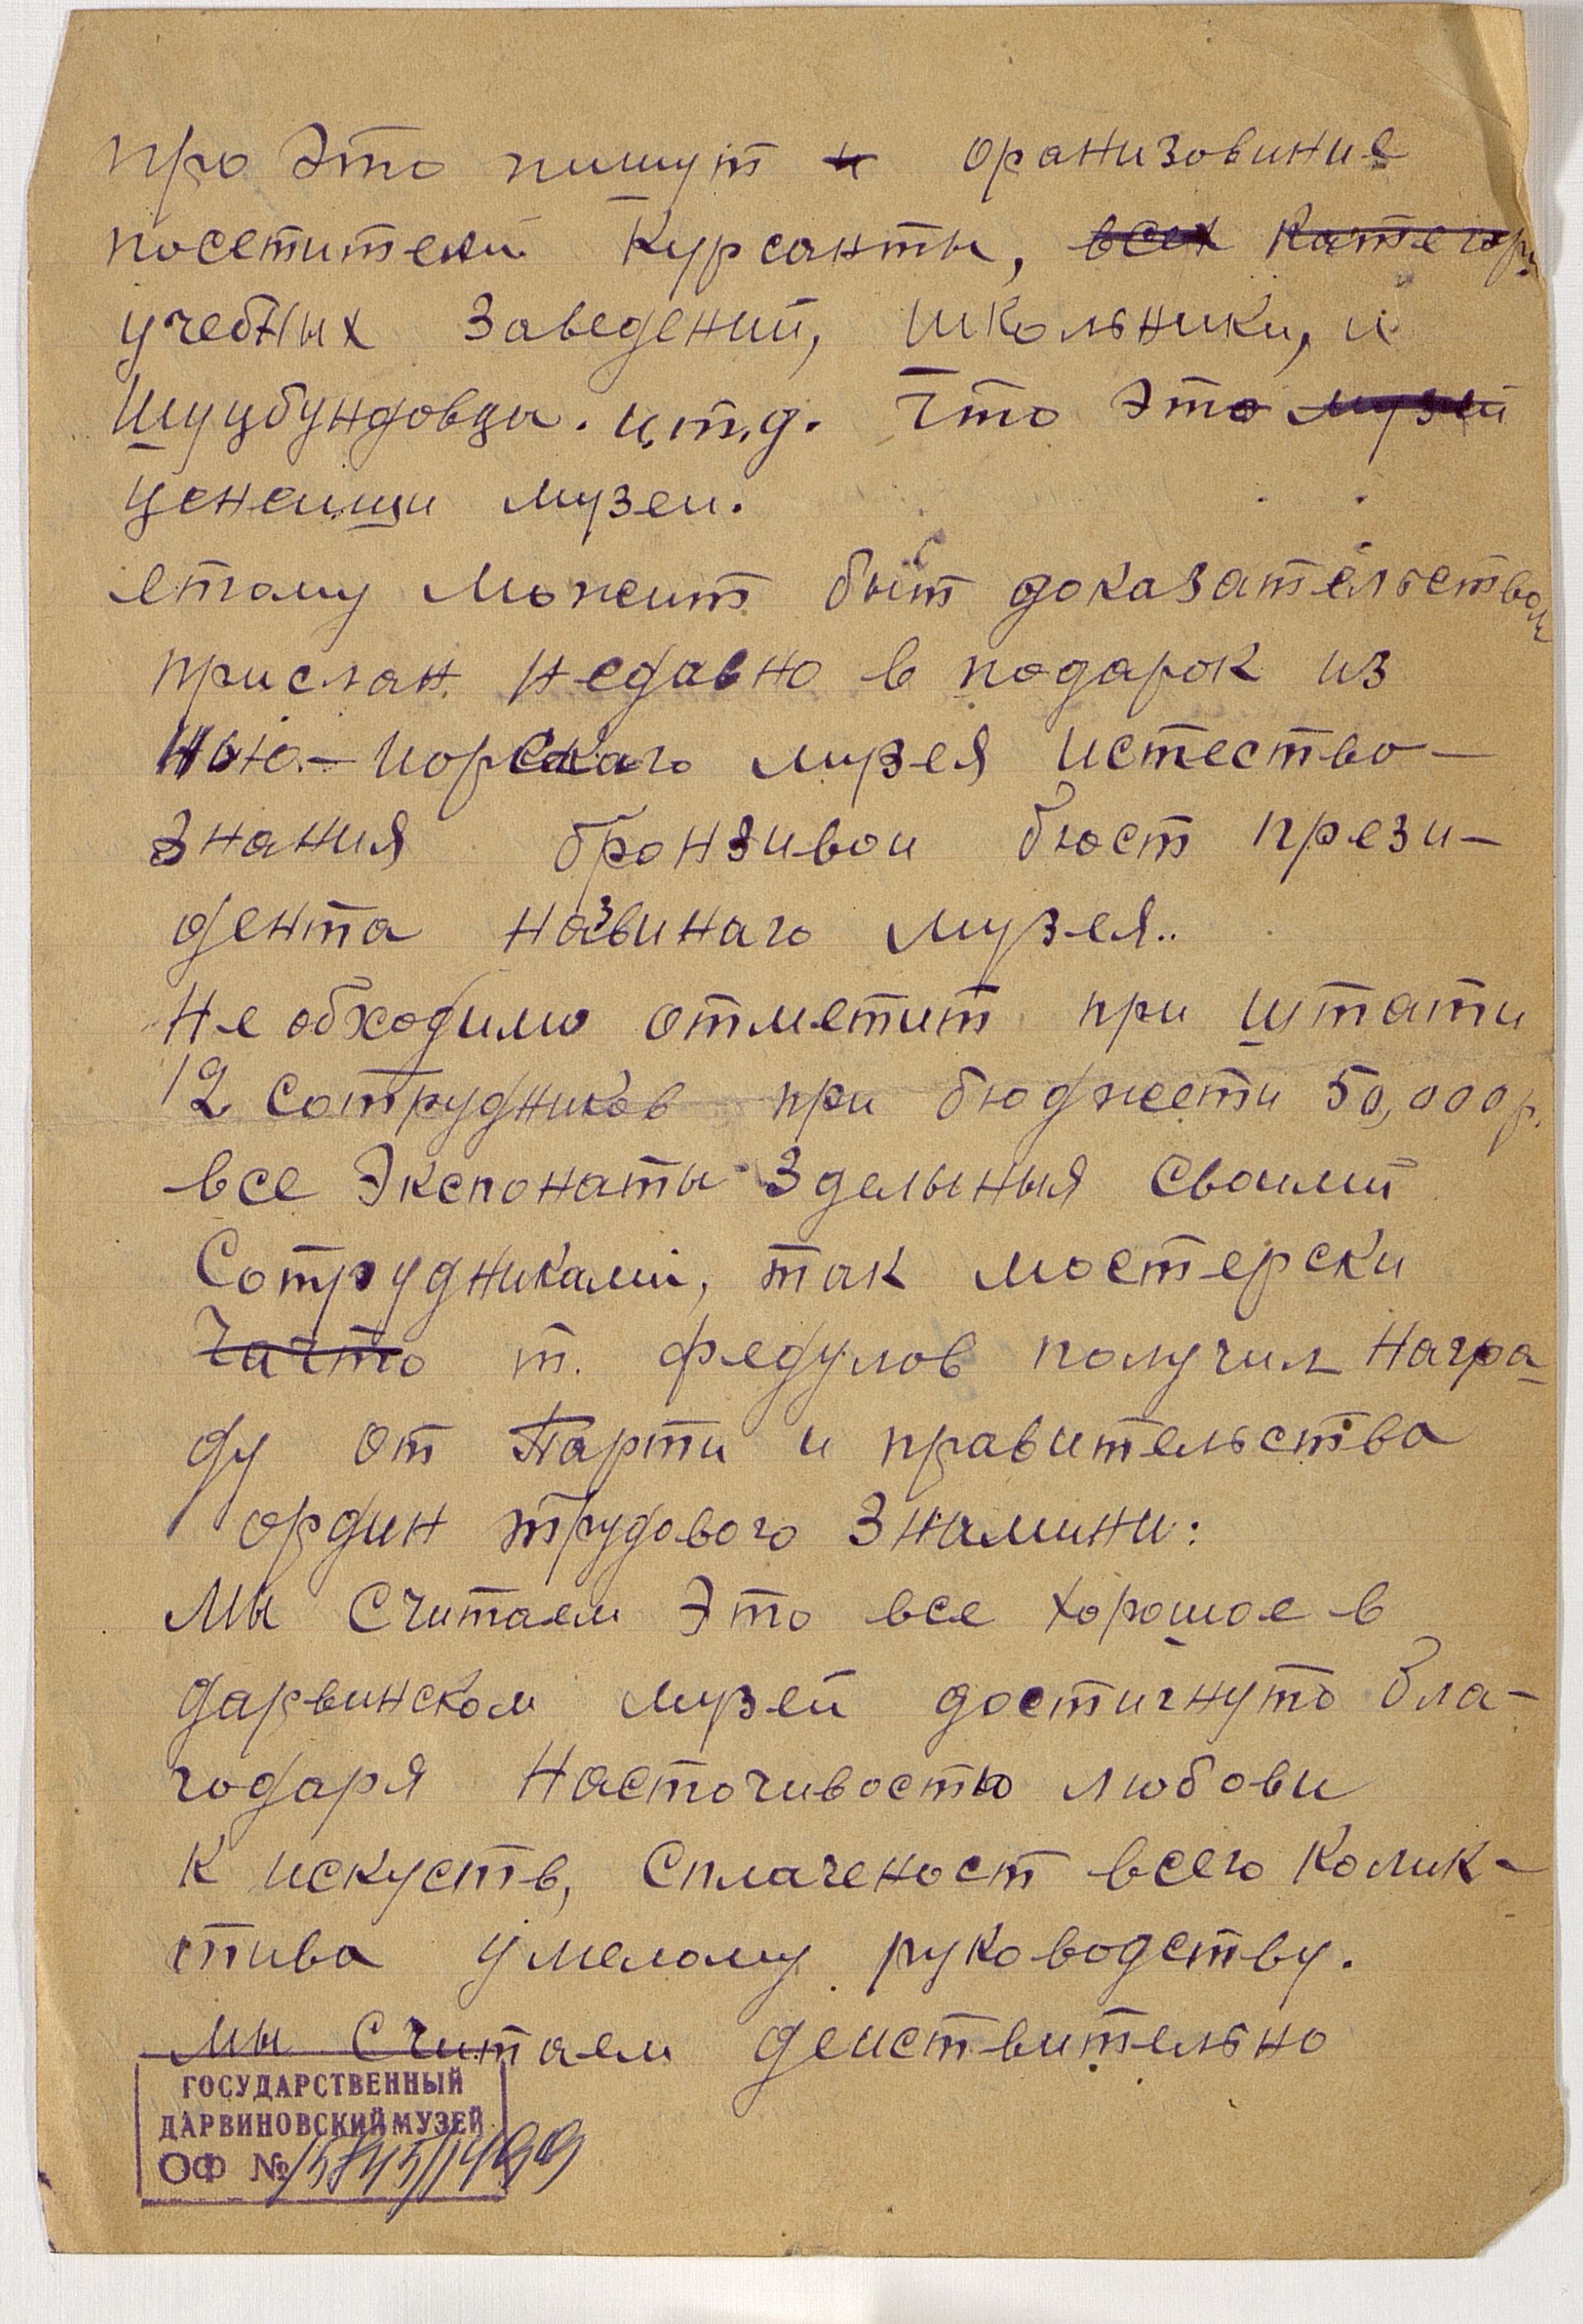 про это пишут и оранизовиние
посетители Курсанты, всех Категори
учебных заведений, школьники, и
Шуцбундовцы. и.т.д. Что это музей
ценеищи музеи.
етому можит быт доказательством
прислан недавно в подарок из
Нью-Иорскаго музея истество-
знания бронзивои бюст прези-
дента назвинаго музея..
Не обходимо отметит при штати
12 сотрудников при бюджети 50,000 р.
все Экспонаты зделыныя своими
Сотрудниками, так мостерски
Чачто т. Федулов получил Награ-
ду от Парти и правительства
ордин трудового Знамини:
Мы Считаем Это все хорошое в
дарвинском музей достигнуто бла-
годаря Насточивостю любови
к искуств, Сплаченост всего Колик-
стива умелому руководству.
мы Считаем деиствительно
ГОСУДАРСТВЕННЫЙ
ДАРВИНОВСКИЙ МУЗЕЙ
ОФ №